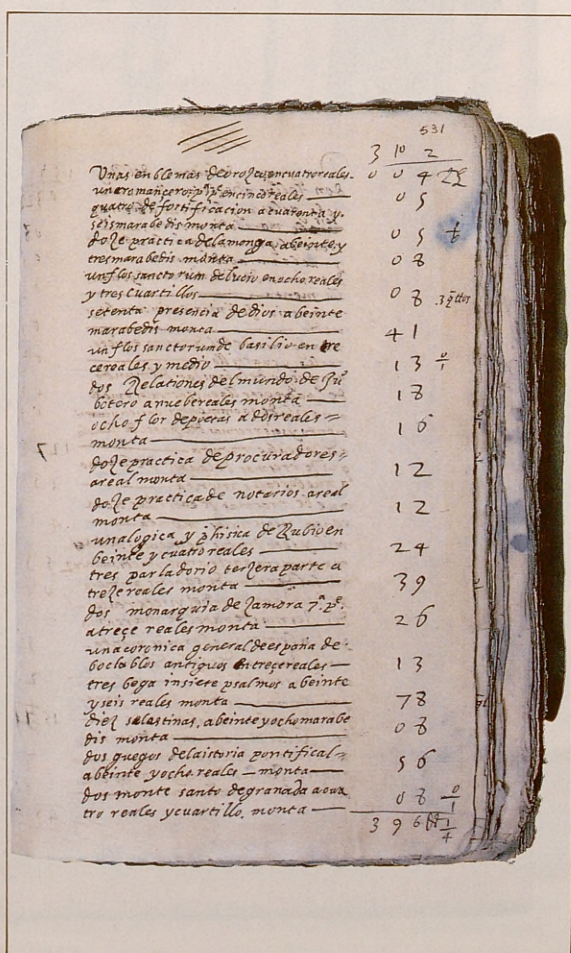 531
3 10 2
Unas enblemas de orozco en cuatro reales 0 0 4
un romancero pte en cinco reales 0 5
quatro de fortificacion a cuarenta y
seis marabedis monta 0 5
doze practica de la monja a beinte y
tres marabedis monta 0 8
un flos sanctorum de lucio en ocho reales
y tres cuartillos 0 8 3 qtos
setenta presencia de dios a beinte
marabedis monta 4 1
un flos sanctorum de basilio en tre
ce reales y medio 1 3
dos Relationes del mundo de Ju
botero a nuebe reales monta 1 8
ocho flor de poetas a dos reales
monta 1 6
doze practica de procuradores
a real monta 1 2
doze practica de notarios a real
monta 1 2
una logica y phisica de Rubio en
beinte y cuatro reales 2 4
tres parladorio terzera parte a
treze reales monta 3 9
dos monarquia de Zamora 7ª pe.
a treçe reales monta 2 6
una coronica general de españa de
bocablos antiguos en treçe reales 1 3
tres bega in siete psalmos a beinte
y seis reales monta 7 8
diez selestinas, a beinte y ocho marabe
dis monta 0 8
dos guegos de la istoria pontifical
a beinte y ocho reales monta 5 6
dos monte santo de granada a cua
tro reales y cuartillo monta 0 8
3 9 6